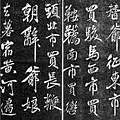 爺征東市
買駿馬西市買
鞍韉南市買轡
頭北市買長鞭
朝辭爺娘
去暮宿黃河邊